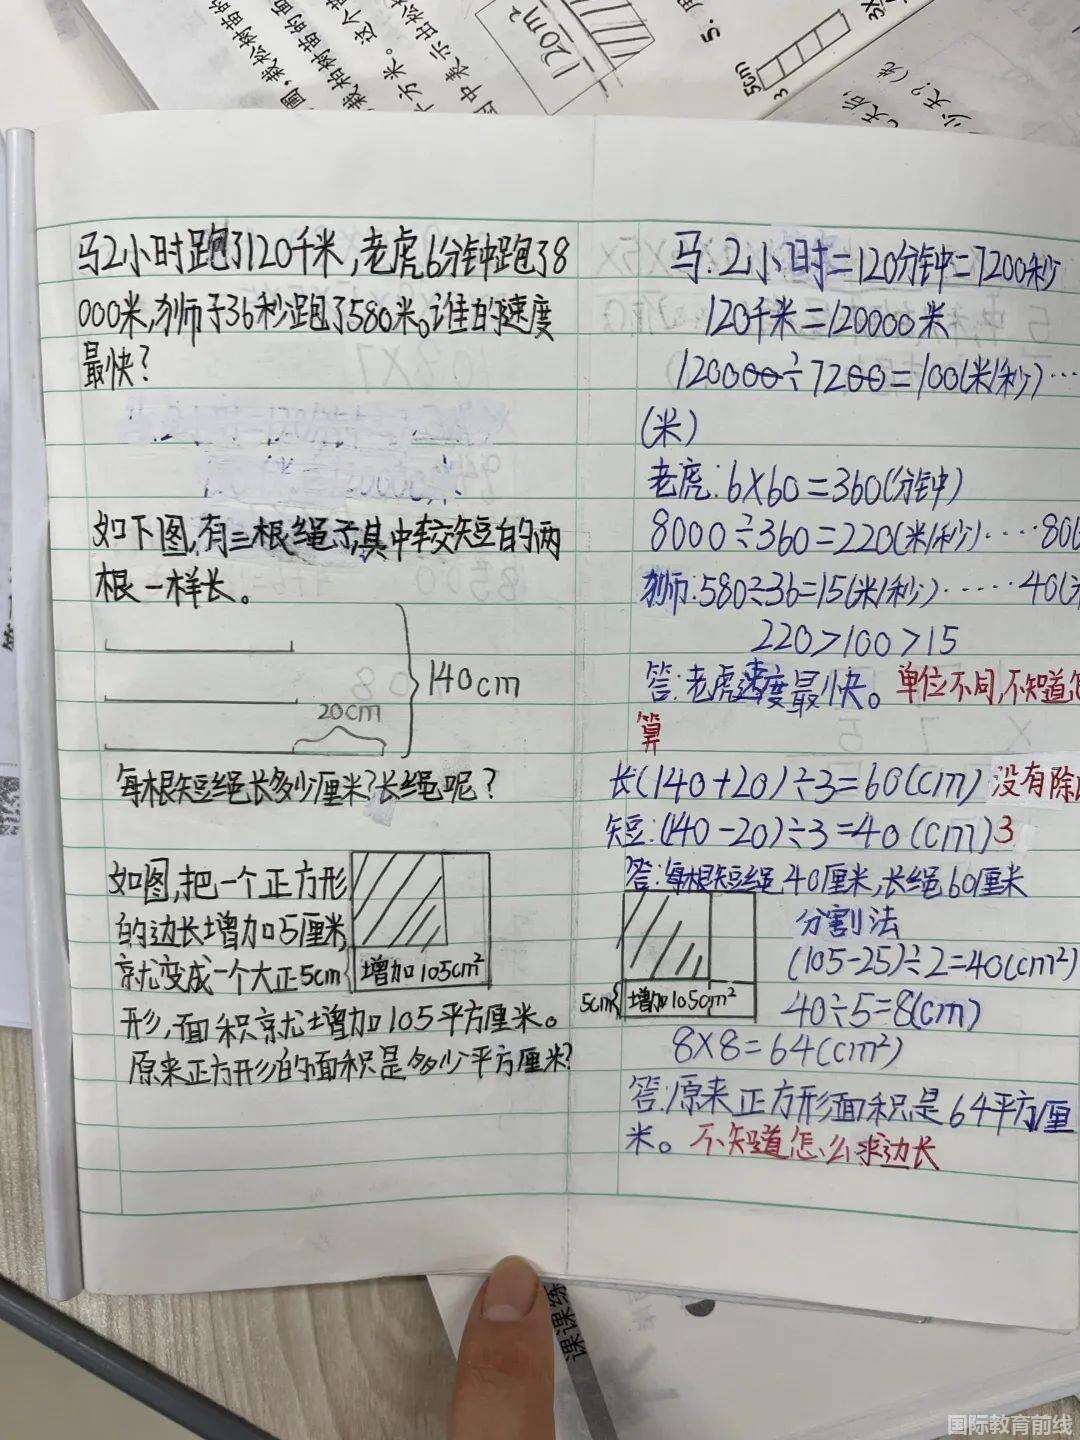 圃,栽松树苗的
栽柏树苗的面
平方米。这个
图中表示出松
120m²
5.
5cm
3
3X
天后,
少天?(先
马2小时跑了120千米,老虎6分钟跑了8
000米,狮子36秒跑了580米。谁的速度
最快?
如下图,有三根绳子,其中较短的两
根一样长。
140cm
20cm
每根短绳长多少厘米?长绳呢?
如图,把一个正方形
的边长增加5厘米,
就变成一个大正
5cm
增加105cm²
形,面积就增加105平方厘米。
原来正方形的面积是多少平方厘米?
马:2小时=120分钟=7200秒
120千米=120000米
120000÷7200=100(米/秒)…
(米)
老虎:6×60=360(分钟)
8000÷360=220(米/秒)……80(
狮:580÷36=15(米/秒)……40(
220>100>15
答:老虎速度最快。单位不同,不知道怎
算
长(140+20)÷3=60(cm) 没有除以
短:(140-20)÷3=40(cm) 3
答:每根短绳40厘米,长绳60厘米
分割法
(105-25)÷2=40(cm²)
5cm
增加105cm²
40÷5=8(cm)
8×8=64(cm²)
答:原来正方形面积是64平方厘
米。不知道怎么求边长
课课练
国际教育前线